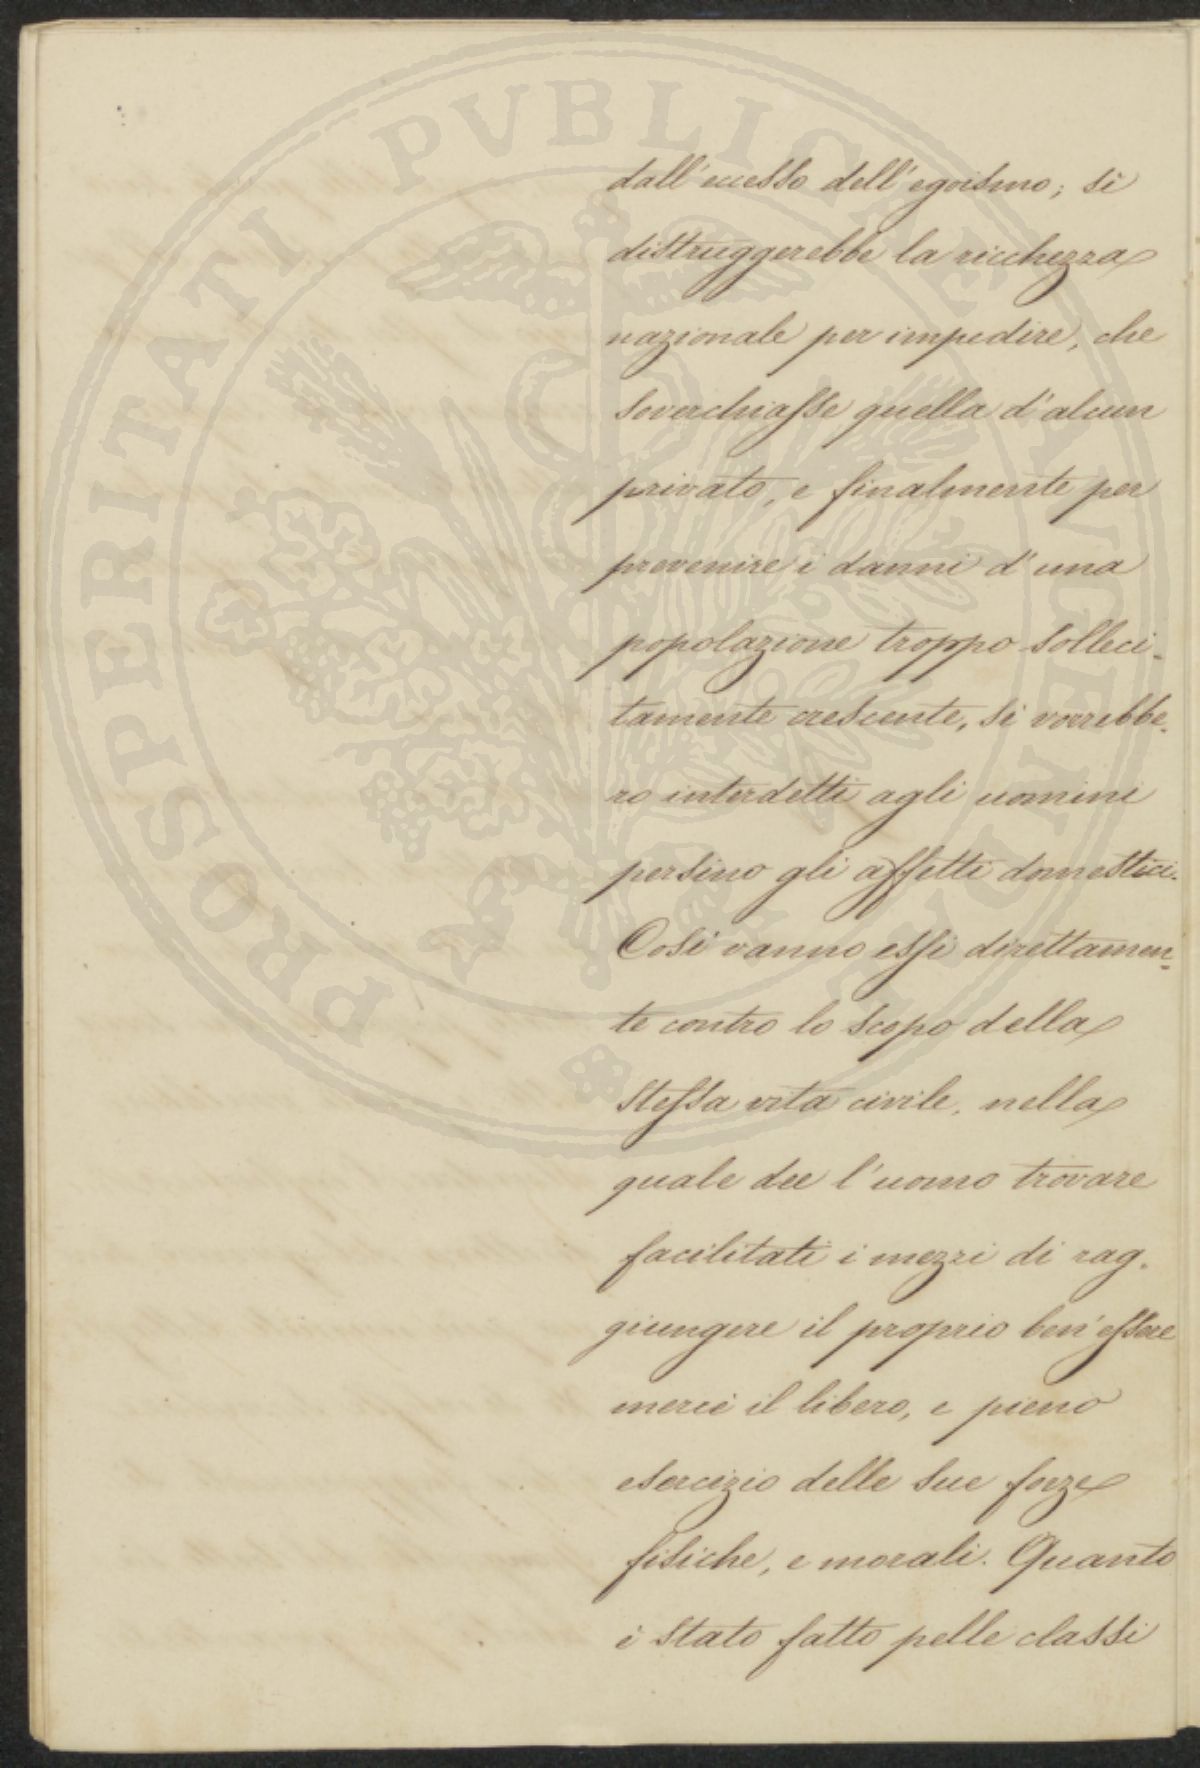 PROSPERITATI PVBLICAE AVGENDAE
dall'eccesso dell'egoismo; si
distruggerebbe la ricchezza
nazionale per impedire, che
soverchiasse quella d'alcun
privato, e finalmente per
prevenire i danni d'una
popolazione troppo solleci-
tamente crescente, si vorrebbe-
ro interdetti agli uomini
persino gli affetti domestici.
Così vanno essi direttamen-
te contro lo scopo della
stessa vita civile, nella
quale dee l'uomo trovare
facilitati i mezzi di rag-
giungere il proprio ben'essere
mercè il libero, e pieno
esercizio delle sue forze
fisiche, e morali. Quanto
è stato fatto pelle classi